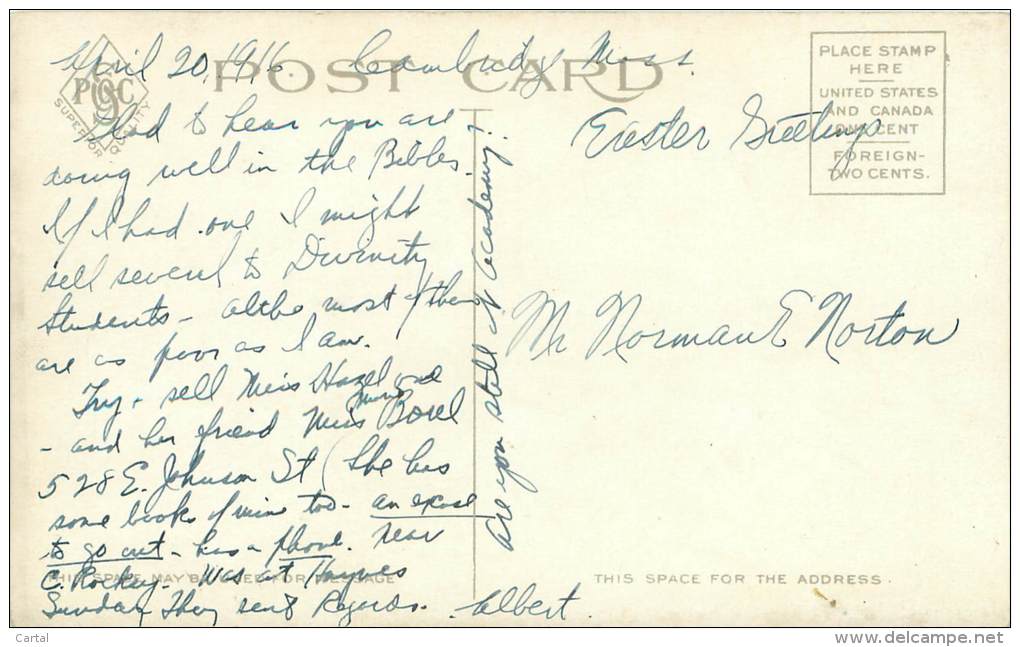 April 20, 1916. Cambridge Mass.
POST CARD
PQC
SUPERIOR QUALITY
PLACE STAMP
HERE
UNITED STATES
AND CANADA
ONE CENT
FOREIGN-
TWO CENTS.
Easter Greetings
Glad to hear you are
doing well in the Bibles.
If I had one I might
sell several to Divinity
Students - altho most of them
are as poor as I am.
Try + sell Miss Hazel one
- and her friend Miss Marie Borel
528 E. Johnson St (She has
some books of mine too - an excuse
to go out - has a phone. near
C. Rockey. Was at Haynes
Sunday They send Regards. Albert.
are you still at Academy?
Mr Norman E Norton
THIS SPACE MAY BE USED FOR MESSAGE
THIS SPACE FOR THE ADDRESS.
Cartal
delcampe.net